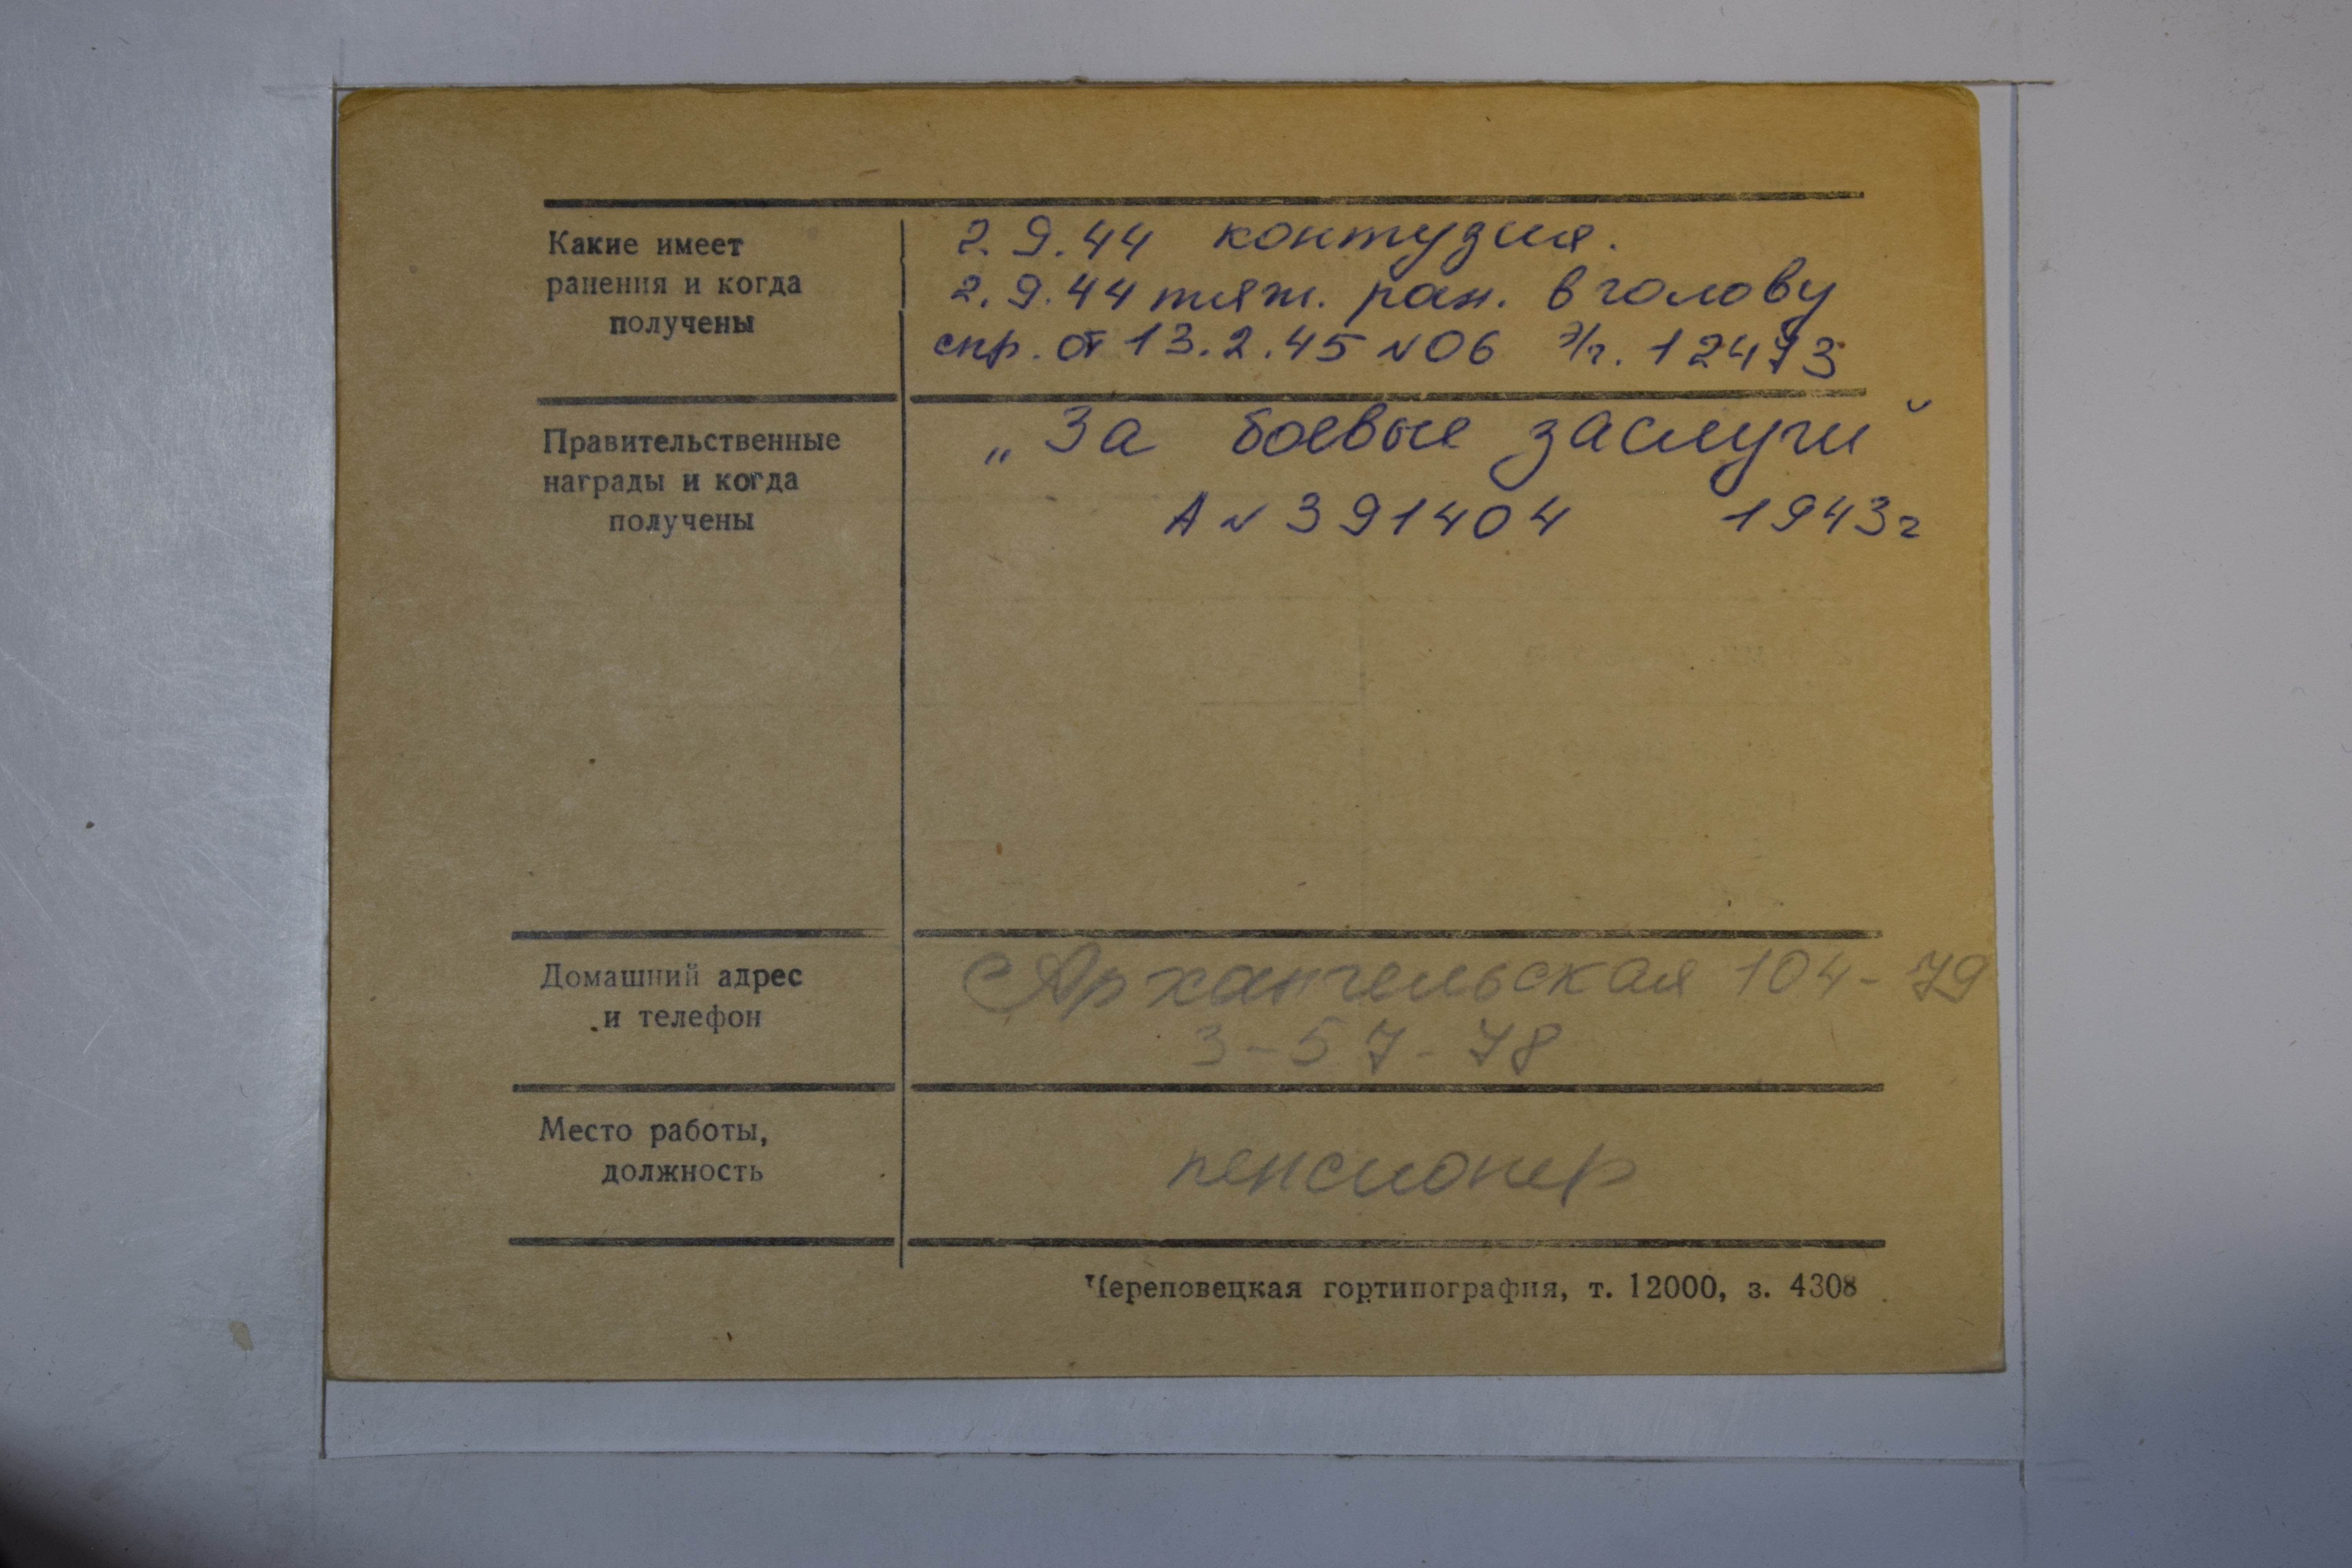 Какие имеет
ранения и когда
получены
2.9.44 контузия.
2.9.44 тяж. ран. в голову
спр. от 13.2.45 №06 э/г. 12473
Правительственные
награды и когда
получены
„За боевые заслуги"
А № 391404 1943г
Домашний адрес
и телефон
Архангельская 104-79
3-57-78
Место работы,
должность
пенсионер
Череповецкая гортипография, т. 12000, з. 4308